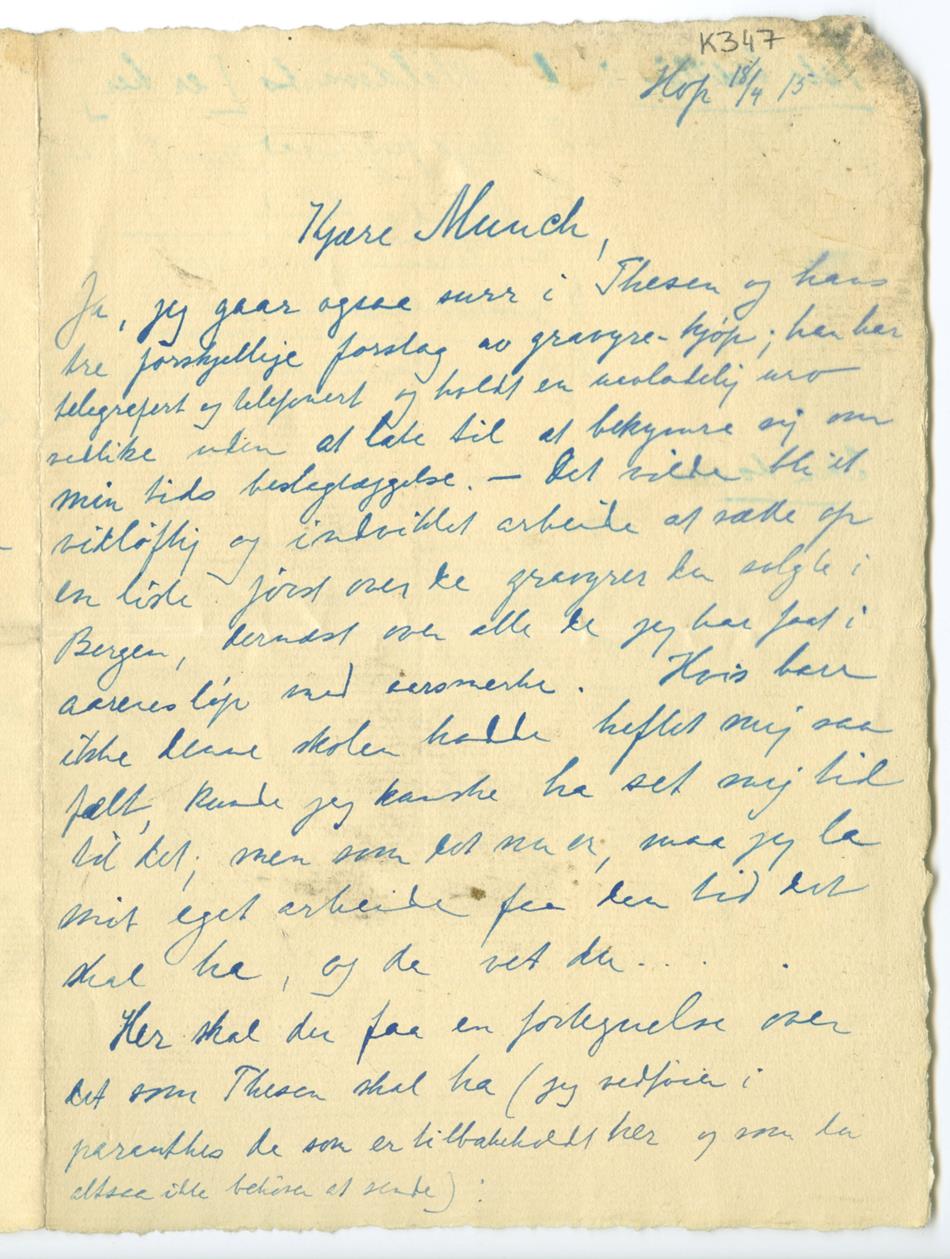 K347
Hop 18/4 15
Kjære Munch,
Ja, jeg gaar ogsaa surr i Thesen og hans
tre forskjellije forslag av gravyre-kjøp; han har
telegrefert og telefonert og holdt en uavladelij uro
vedlike uden at late til at bekymre sij om
min tids beslaglæggelse. — Det vilde bli et
vidtløftij og indviklet arbeide at sætte op
en liste først over de gravyrer du solgte i
Bergen, dernæst over alle de jeg har faat i
aarenes løp med aarsmerke. Hvis bare
ikke denne skolen hadde heftet mij saa
fælt, kunde jeg kanske ha set mij tid
til det; men som det nu er, maa jeg la
mit eget arbeide faa den tid det
skal ha, og da vet du....
Her skal du faa en fortegnelse over
det som Thesen skal ha (jeg vedføier i
paranthes de som er tilbakeholdt her og som du
altsaa ikke behøver at sende) :